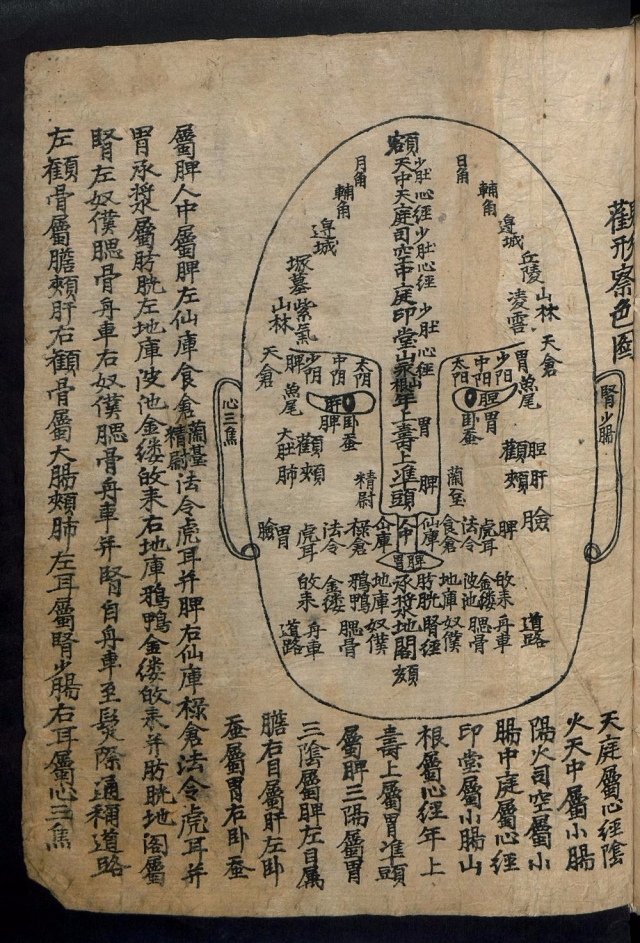 觀形察色圖
腎少腸
日角
輔角
邉城
丘陵
凌雲
山林
天倉
額天中天庭司空中庭印堂山根年上壽上準頭
少肚心經少肚心經
少肚心經
月角
輔角
邉城
塚墓
紫氣
山林
天倉
胃
少阳
中阳
太阳
魚尾
胆
胃
卧蚕
脾
少阴
中阴
太阴
魚尾
肝
脾
卧蚕
心三焦
胆肝
顴頰
胃
脾
蘭䑓
精尉
顴頰
大肚肺
臉
脾
虎耳
法令
食倉
仙庫
禄倉
法令
虎耳
胃
臉
胃脾
承漿地閣頦
膀胱腎經
地庫奴僕
波池
金缕
敀耒
腮骨
舟車
道路
地庫奴僕
鵶鴨
金缕
敀耒
腮骨
舟車
道路
天庭屬心經陰
火天中屬小腸
陽火司空屬小
腸中庭屬心經
印堂屬小腸山
根屬心經年上
壽上屬胃準頭
屬脾三陽屬胃
三陰屬脾左目属
膽右目屬肝左卧
蚕屬胃右卧蚕
屬脾人中屬脾左仙庫食倉蘭䑓精尉法令虎耳并脾右仙庫禄倉法令虎耳并
胃承漿屬膀胱左地庫波池金缕敀耒右地庫鵶鴨金缕敀耒并膀胱地閣屬
腎左奴僕腮骨舟車右奴僕腮骨舟車并腎自舟車至鬂際通稱道路
左顴骨屬膽頰肝右顴骨屬大腸頰肺左耳屬腎少腸右耳屬心三焦